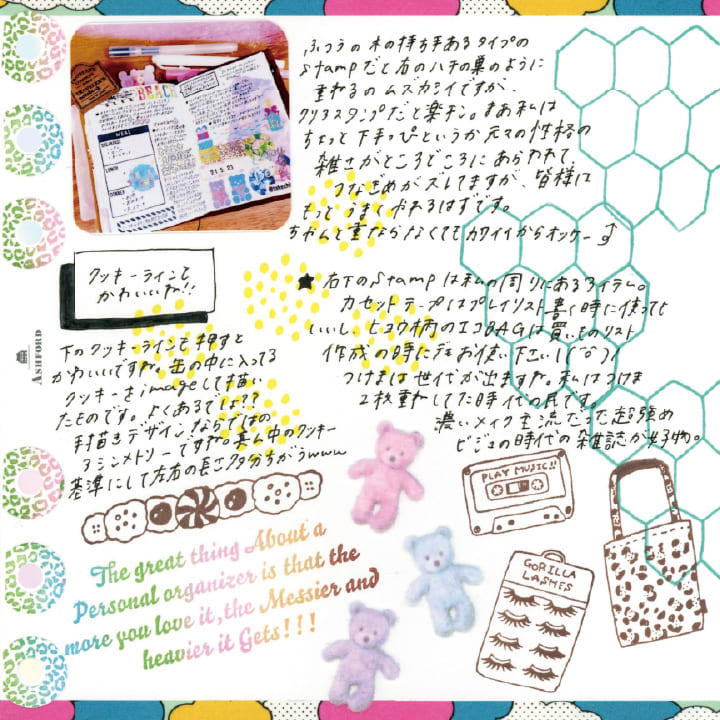 ふつうの木の持ち手あるタイプの
stampだと右のハチの巣のように
重ねるのムズカシイですが、
クリアスタンプだと楽チン。まあ私は
ちょっと下手っぴというか元々の性格の
雑さがところどころにあらわれて、
つなぎめがズレてますが、皆様は
もっとうまくやれるはずです。
ちゃんと重ならなくてもカワイイからオッケー♪
BEACH
21.5.23
クッキーラインで
かわいいね!!
★右下のstampは私の周りにあるアイテム。
カセットテープはプレイリスト書く時に使っても
いいし、ヒョウ柄のエコBAGは買いものリスト
作成の時にぜひお使い下さい!
つけまは世代が出ますね。私はつけま
2枚重ねしてた時代の民です。
濃いメイク主流だった超強め
ビジュの時代の雑誌が好物。
ASHFORD
下のクッキーラインで押すと
かわいいですね。缶の中に入ってる
クッキーをimageして描い
たものです。よくあるでしょ??
手描きデザインならではの
アシンメトリーですが真ん中のクッキー
基準にして左右の長さ多分ちがうwww
PLAY MUSIC!!
GORILLA
LASHES
The great thing About a
Personal organizer is that the
more you love it, the Messier and
heavier it Gets!!!